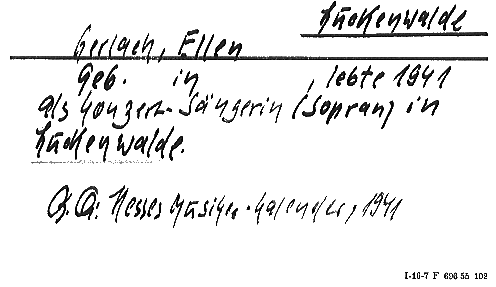 Luckenwalde
Gerlach, Ellen
Geb. in , lebte 1941
als Konzert-Sängerin (Sopran) in
Luckenwalde.
B.Q: Hesses Musiker-Kalender, 1941
I-16-7 F 696 55 102